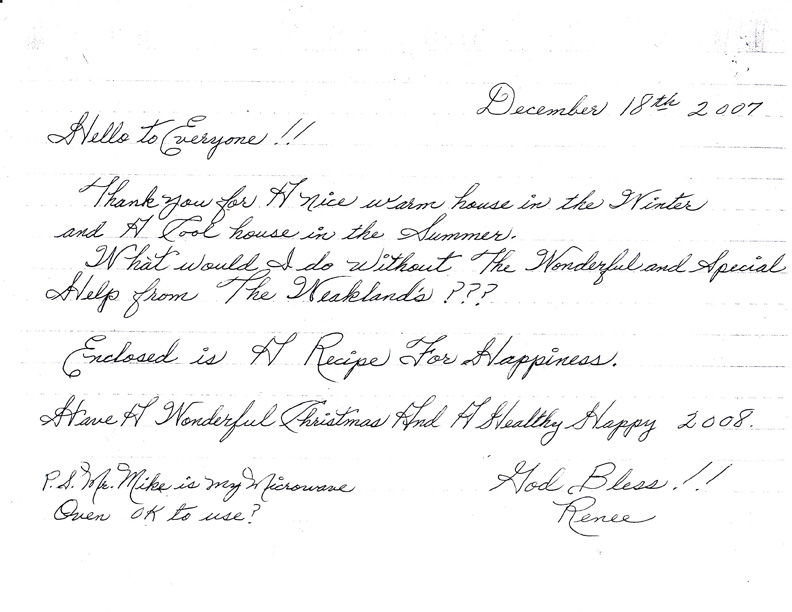 December 18th 2007
Hello to Everyone!!
Thank you for A nice warm house in the Winter
and A Cool house in the Summer.
What would I do without The Wonderful and Special
Help from The Weakland's???
Enclosed is A Recipe For Happiness.
Have A Wonderful Christmas And A Healthy Happy 2008.
God Bless!!
Renee
P.S. Mr. Mike is my Microwave
Oven OK to use?